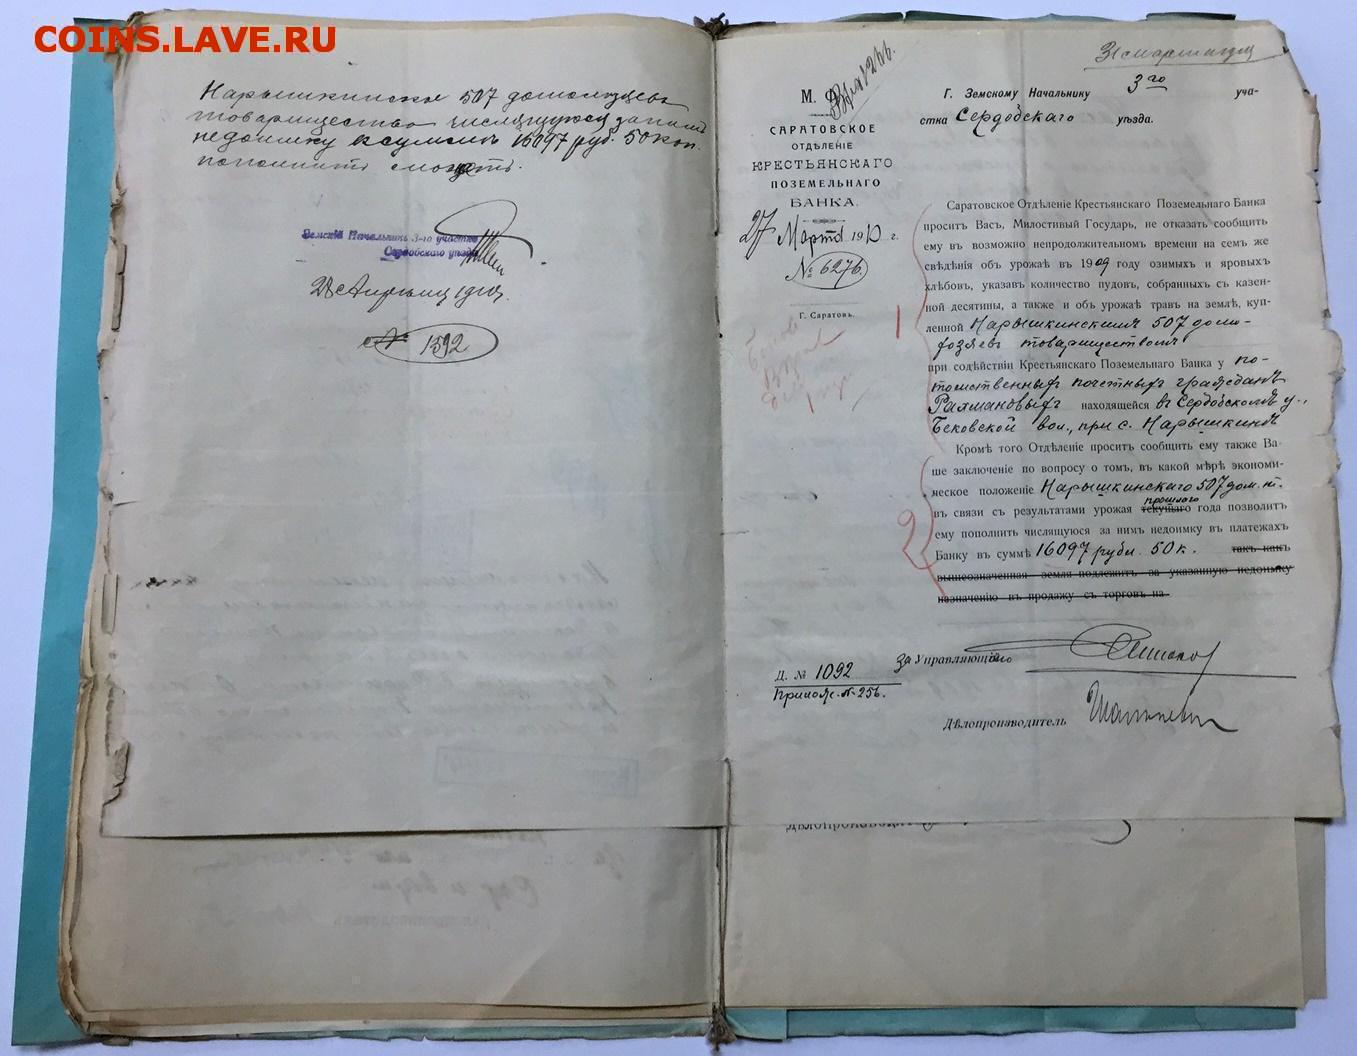 COINS.LAVE.RU
Нарышкинское 507 домохозяевъ
товарищество числящуюся за нимъ
недоимку въ суммѣ 16097 руб. 50 коп.
пополнить можетъ.
Земскій Начальникъ 3-го участка
Сердобскаго уѣзда
28 Апрѣля 1910 г.
№ 1592
М. Ф.
САРАТОВСКОЕ
ОТДѢЛЕНІЕ
КРЕСТЬЯНСКАГО
ПОЗЕМЕЛЬНАГО
БАНКА.
27 Марта 1910 г.
№ 6276.
Г. Саратовъ.
Г. Земскому Начальнику 3го уча-
стка Сердобскаго уѣзда.
1
Саратовское Отдѣленіе Крестьянскаго Поземельнаго Банка
проситъ Васъ, Милостивый Государь, не отказать сообщить
ему въ возможно непродолжительномъ времени на семъ же
свѣдѣнія объ урожаѣ въ 1909 году озимыхъ и яровыхъ
хлѣбовъ, указавъ количество пудовъ, собранныхъ съ казен-
ной десятины, а также и объ урожаѣ травъ на землѣ, куп-
ленной Нарышкинскимъ 507 домо-
хозяевъ товариществомъ
при содѣйствіи Крестьянскаго Поземельнаго Банка у по-
томственныхъ почетныхъ гражданъ
Рахмановыхъ находящейся въ Сердобскомъ у.,
Бековской вол., при с. Нарышкинѣ
2
Кромѣ того Отдѣленіе проситъ сообщить ему также Ва-
ше заключеніе по вопросу о томъ, въ какой мѣрѣ экономи-
ческое положеніе Нарышкинскаго 507 дом. т.
прошлаго
въ связи съ результатами урожая текущаго года позволитъ
ему пополнить числящуюся за нимъ недоимку въ платежахъ
Банку въ суммѣ 16097 рубл. 50 к. такъ какъ
вышеозначенная земля подлежитъ за указанную недоимку
назначенію въ продажу съ торговъ на
За Управляющаго
Д. № 1092
Прилож. № 256.
Дѣлопроизводитель